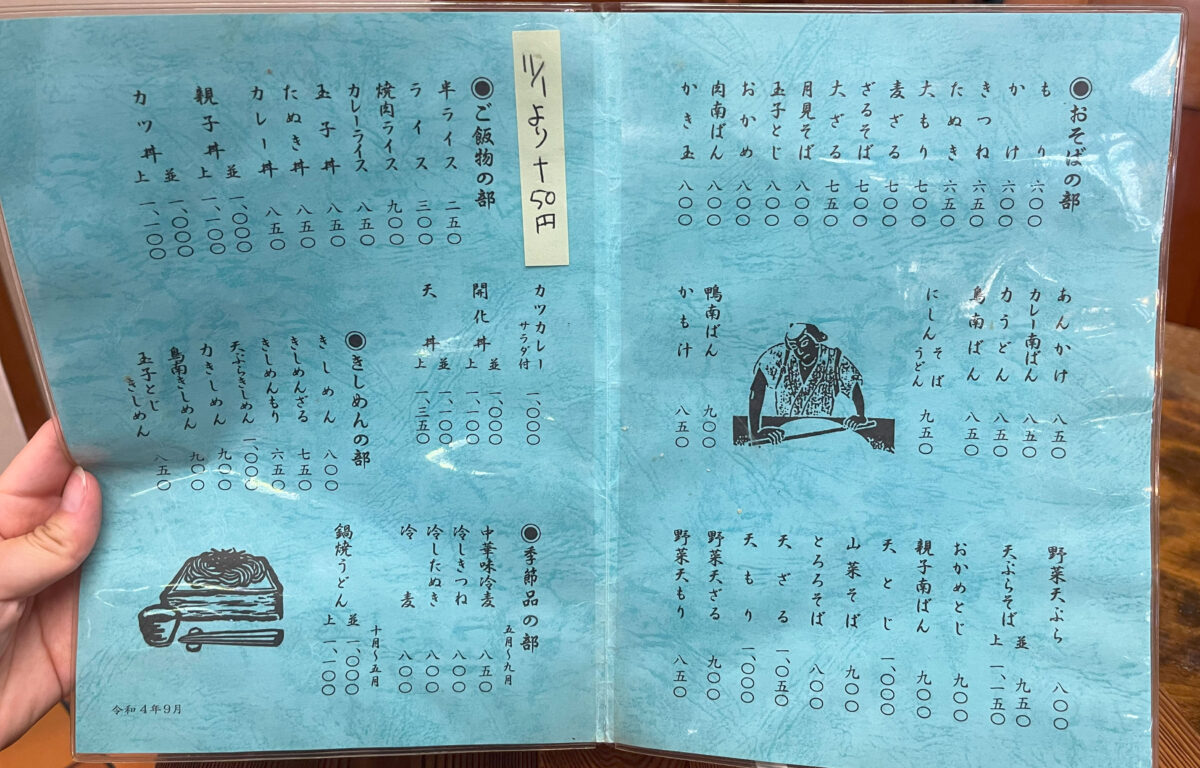 おそばの部
もり 六〇〇
かけ 六〇〇
きつね 六五〇
たぬき 六五〇
大もり 七〇〇
麦ざる 七〇〇
ざるそば 七〇〇
大ざる 七五〇
月見そば 八〇〇
玉子とじ 八〇〇
おかめ 八〇〇
肉南ばん 八〇〇
かき玉 八〇〇
あんかけ 八五〇
カレー南ばん 八五〇
力うどん 八五〇
鳥南ばん 八五〇
にしんそば
うどん 九五〇
鴨南ばん 九〇〇
かも汁 八五〇
野菜天ぷら 八〇〇
天ぷらそば 並 九五〇
上 一、一五〇
おかめとじ 九〇〇
親子南ばん 九〇〇
天とじ 一、〇〇〇
山菜そば 九〇〇
とろろそば 八〇〇
天ざる 一、〇五〇
天もり 一、〇〇〇
野菜天ざる 九〇〇
野菜天もり 八五〇
11/1より+50円
ご飯物の部
半ライス 二五〇
ライス 三〇〇
焼肉ライス 九〇〇
カレーライス 八五〇
玉子丼 八五〇
たぬき丼 八五〇
カレー丼 八五〇
親子丼 並 一、〇〇〇
上 一、一〇〇
カツ丼 並 一、〇〇〇
上 一、一〇〇
カツカレー 一、〇〇〇
サラダ付
開化丼 並 一、〇〇〇
上 一、一〇〇
天丼 並 一、一〇〇
上 一、三五〇
きしめんの部
きしめん 八〇〇
きしめんざる 七五〇
きしめんもり 六五〇
天ぷらきしめん 一、〇〇〇
力きしめん 九〇〇
鳥南きしめん 九〇〇
玉子とじきしめん 八五〇
季節品の部
五月〜九月
中華味冷麦 八五〇
冷しきつね 八〇〇
冷したぬき 八〇〇
冷麦 八〇〇
十月〜五月
鍋焼うどん 並 一、〇〇〇
上 一、一〇〇
令和4年9月